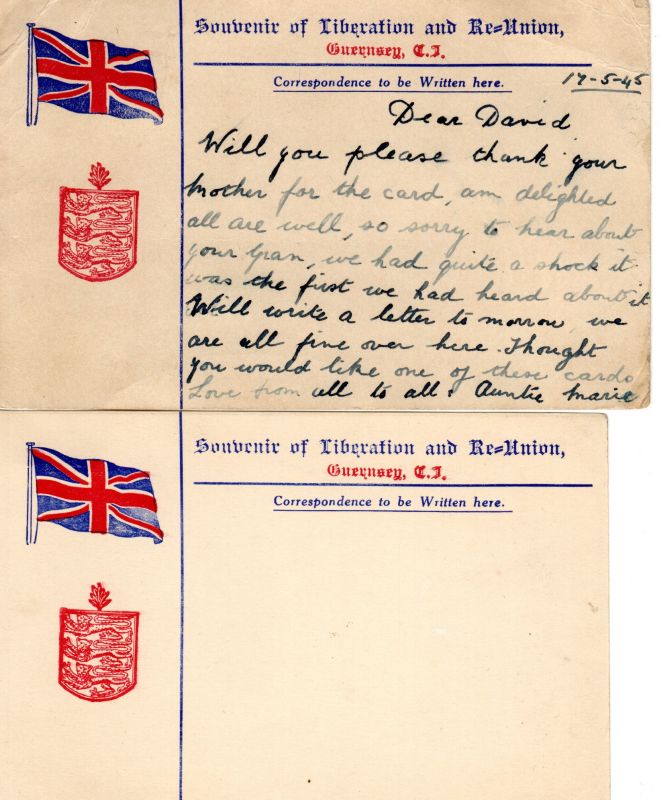 Souvenir of Liberation and Re=Union,
Guernsey, C.I.
Correspondence to be Written here.
17-5-45
Dear David
Will you please thank your
Mother for the card, am delighted
all are well, so sorry to hear about
your Gran, we had quite a shock it
was the first we had heard about it
Will write a letter to morrow, we
are all fine over here. Thought
you would like one of these cards
Love from all to all. Auntie Marie
Souvenir of Liberation and Re=Union,
Guernsey, C.I.
Correspondence to be Written here.